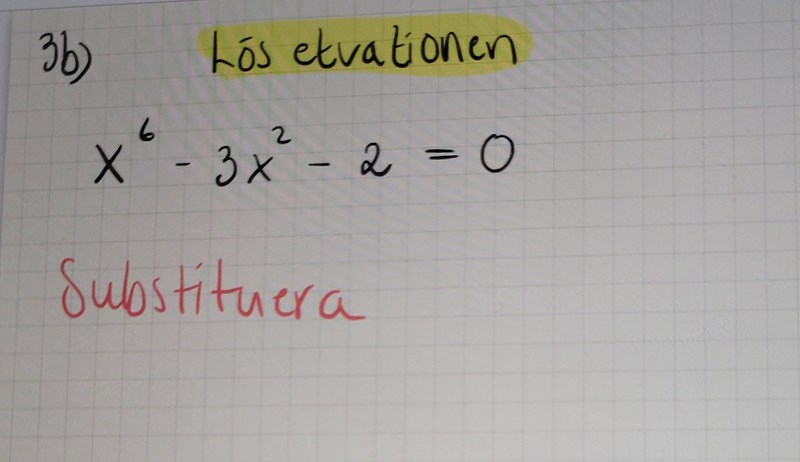 3b) Lös etvationen
x⁶ - 3x² - 2 = 0
Substituera